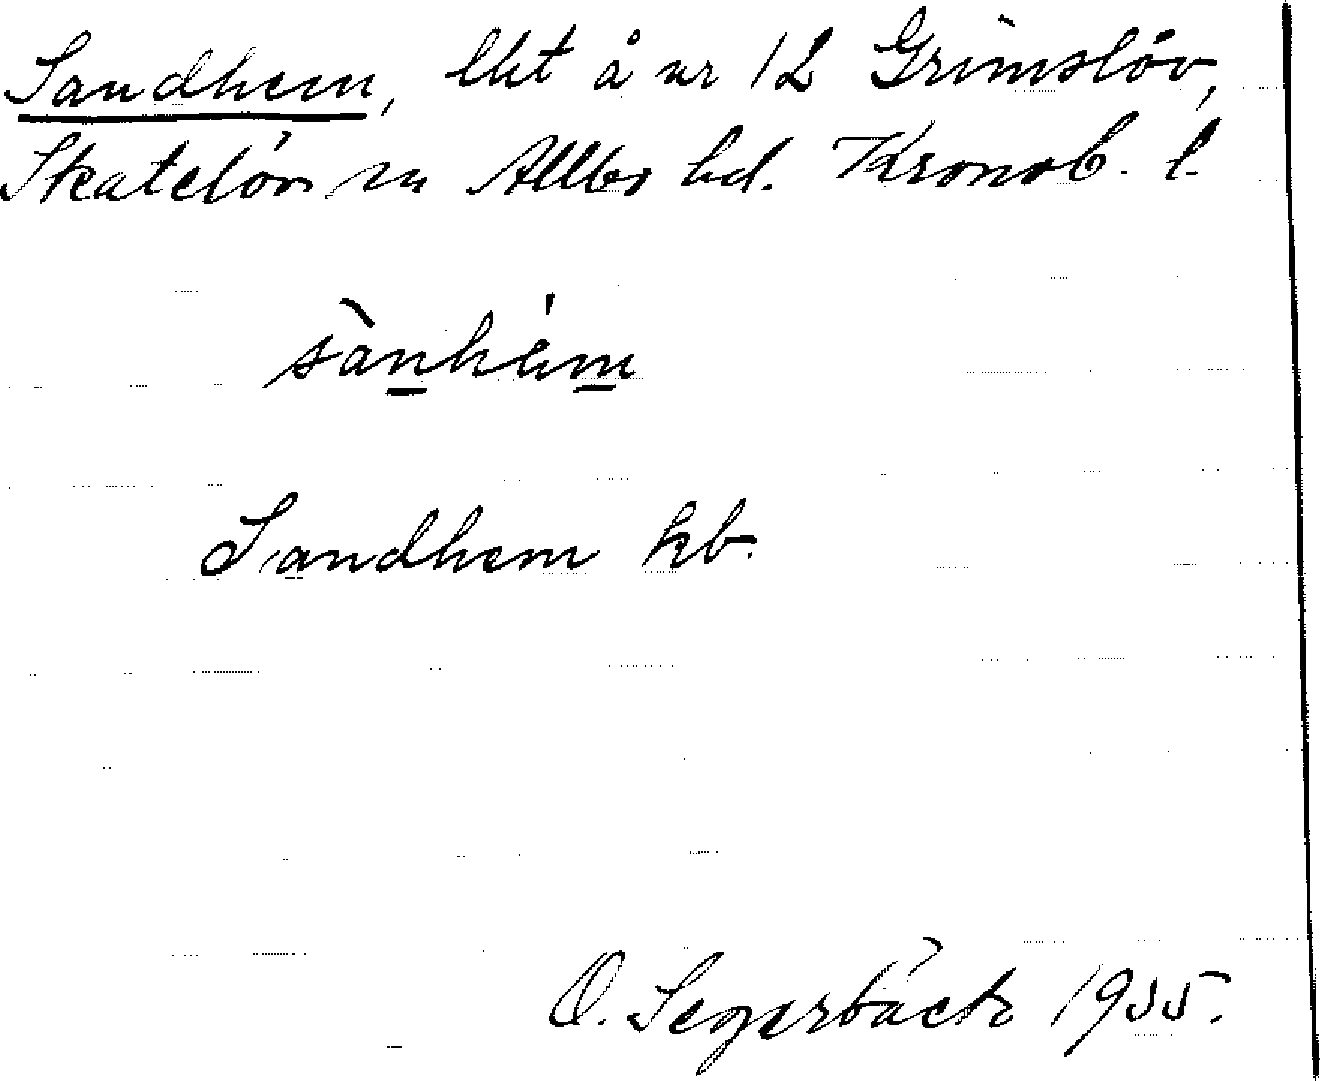 Sandhem, lht å nr 12 Grimslöv,
Skatelöv sn Allbo hd. Kronob. l.
sànhém
Sandhem kb.
O. Segerbäck 1935.